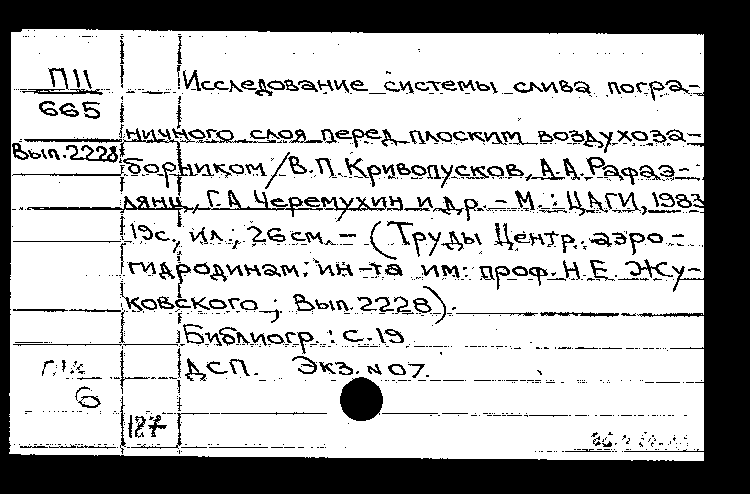 П11
665
Вып.2228
Исследование системы слива погра-
ничного слоя перед плоским воздухоза-
борником / В.П. Кривопусков, А.А. Рафаэ-
лянц, Г.А. Черемухин и др. - М. : ЦАГИ, 1983
19с., ил.; 26 см. - (Труды Центр. аэро-
гидродинам. ин-та им. проф. Н.Е. Жу-
ковского ; Вып. 2228).
Библиогр. : с. 19
ДСП. Экз. N 07.
6
127